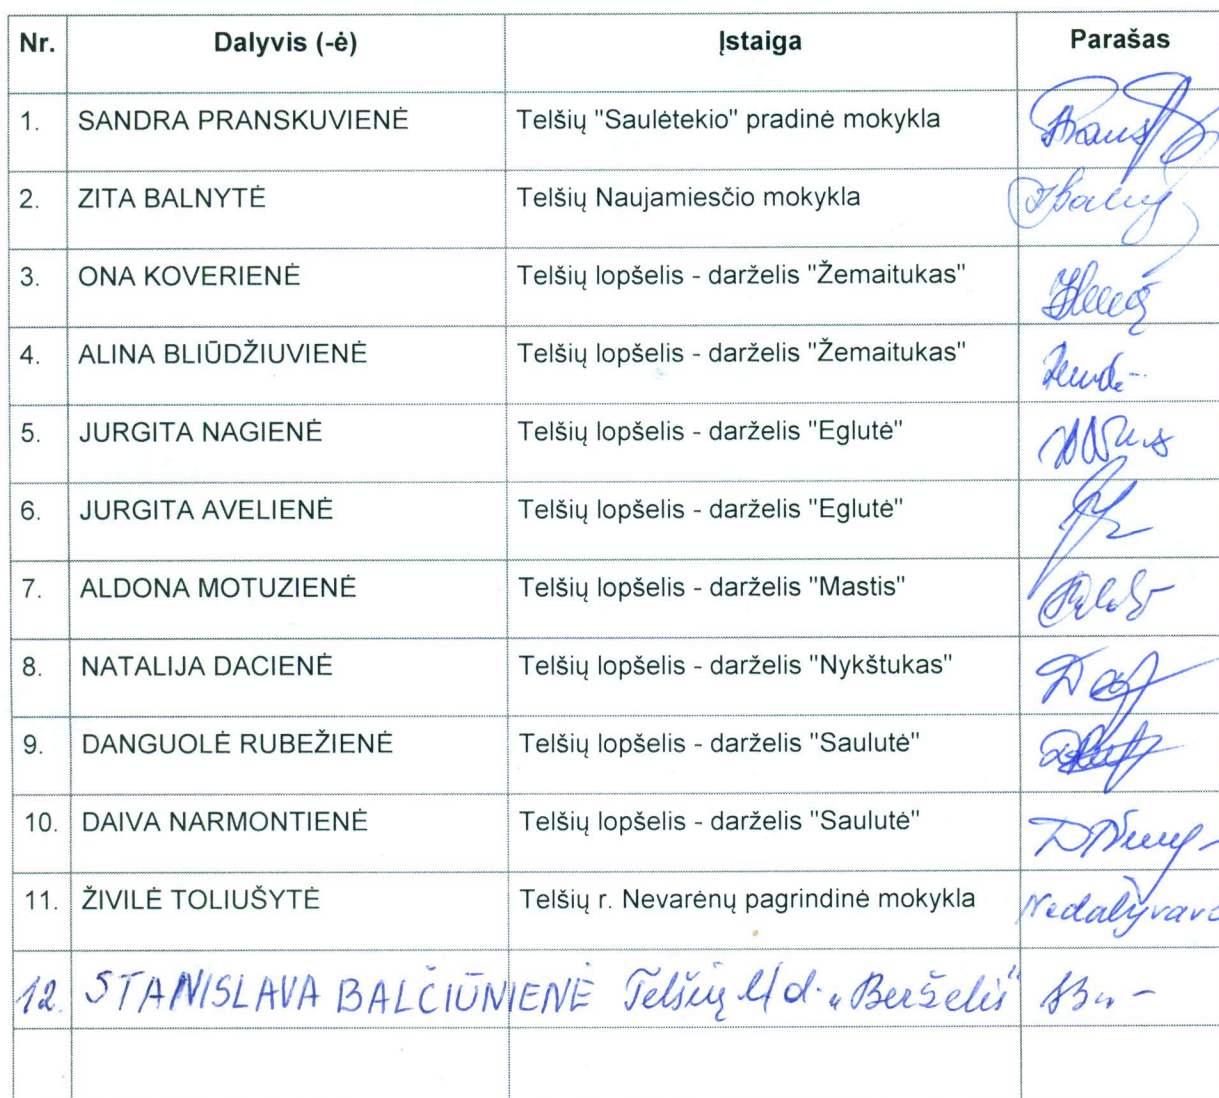 Nr. Dalyvis (-ė) Įstaiga Parašas
1. SANDRA PRANSKUVIENĖ Telšių "Saulėtekio" pradinė mokykla
2. ZITA BALNYTĖ Telšių Naujamiesčio mokykla
3. ONA KOVERIENĖ Telšių lopšelis - darželis "Žemaitukas"
4. ALINA BLIŪDŽIUVIENĖ Telšių lopšelis - darželis "Žemaitukas"
5. JURGITA NAGIENĖ Telšių lopšelis - darželis "Eglutė"
6. JURGITA AVELIENĖ Telšių lopšelis - darželis "Eglutė"
7. ALDONA MOTUZIENĖ Telšių lopšelis - darželis "Mastis"
8. NATALIJA DACIENĖ Telšių lopšelis - darželis "Nykštukas"
9. DANGUOLĖ RUBEŽIENĖ Telšių lopšelis - darželis "Saulutė"
10. DAIVA NARMONTIENĖ Telšių lopšelis - darželis "Saulutė"
11. ŽIVILĖ TOLIUŠYTĖ Telšių r. Nevarėnų pagrindinė mokykla Nedalyvavo
12. STANISLAVA BALČIŪNIENĖ Telšių l/d. „Berželis"